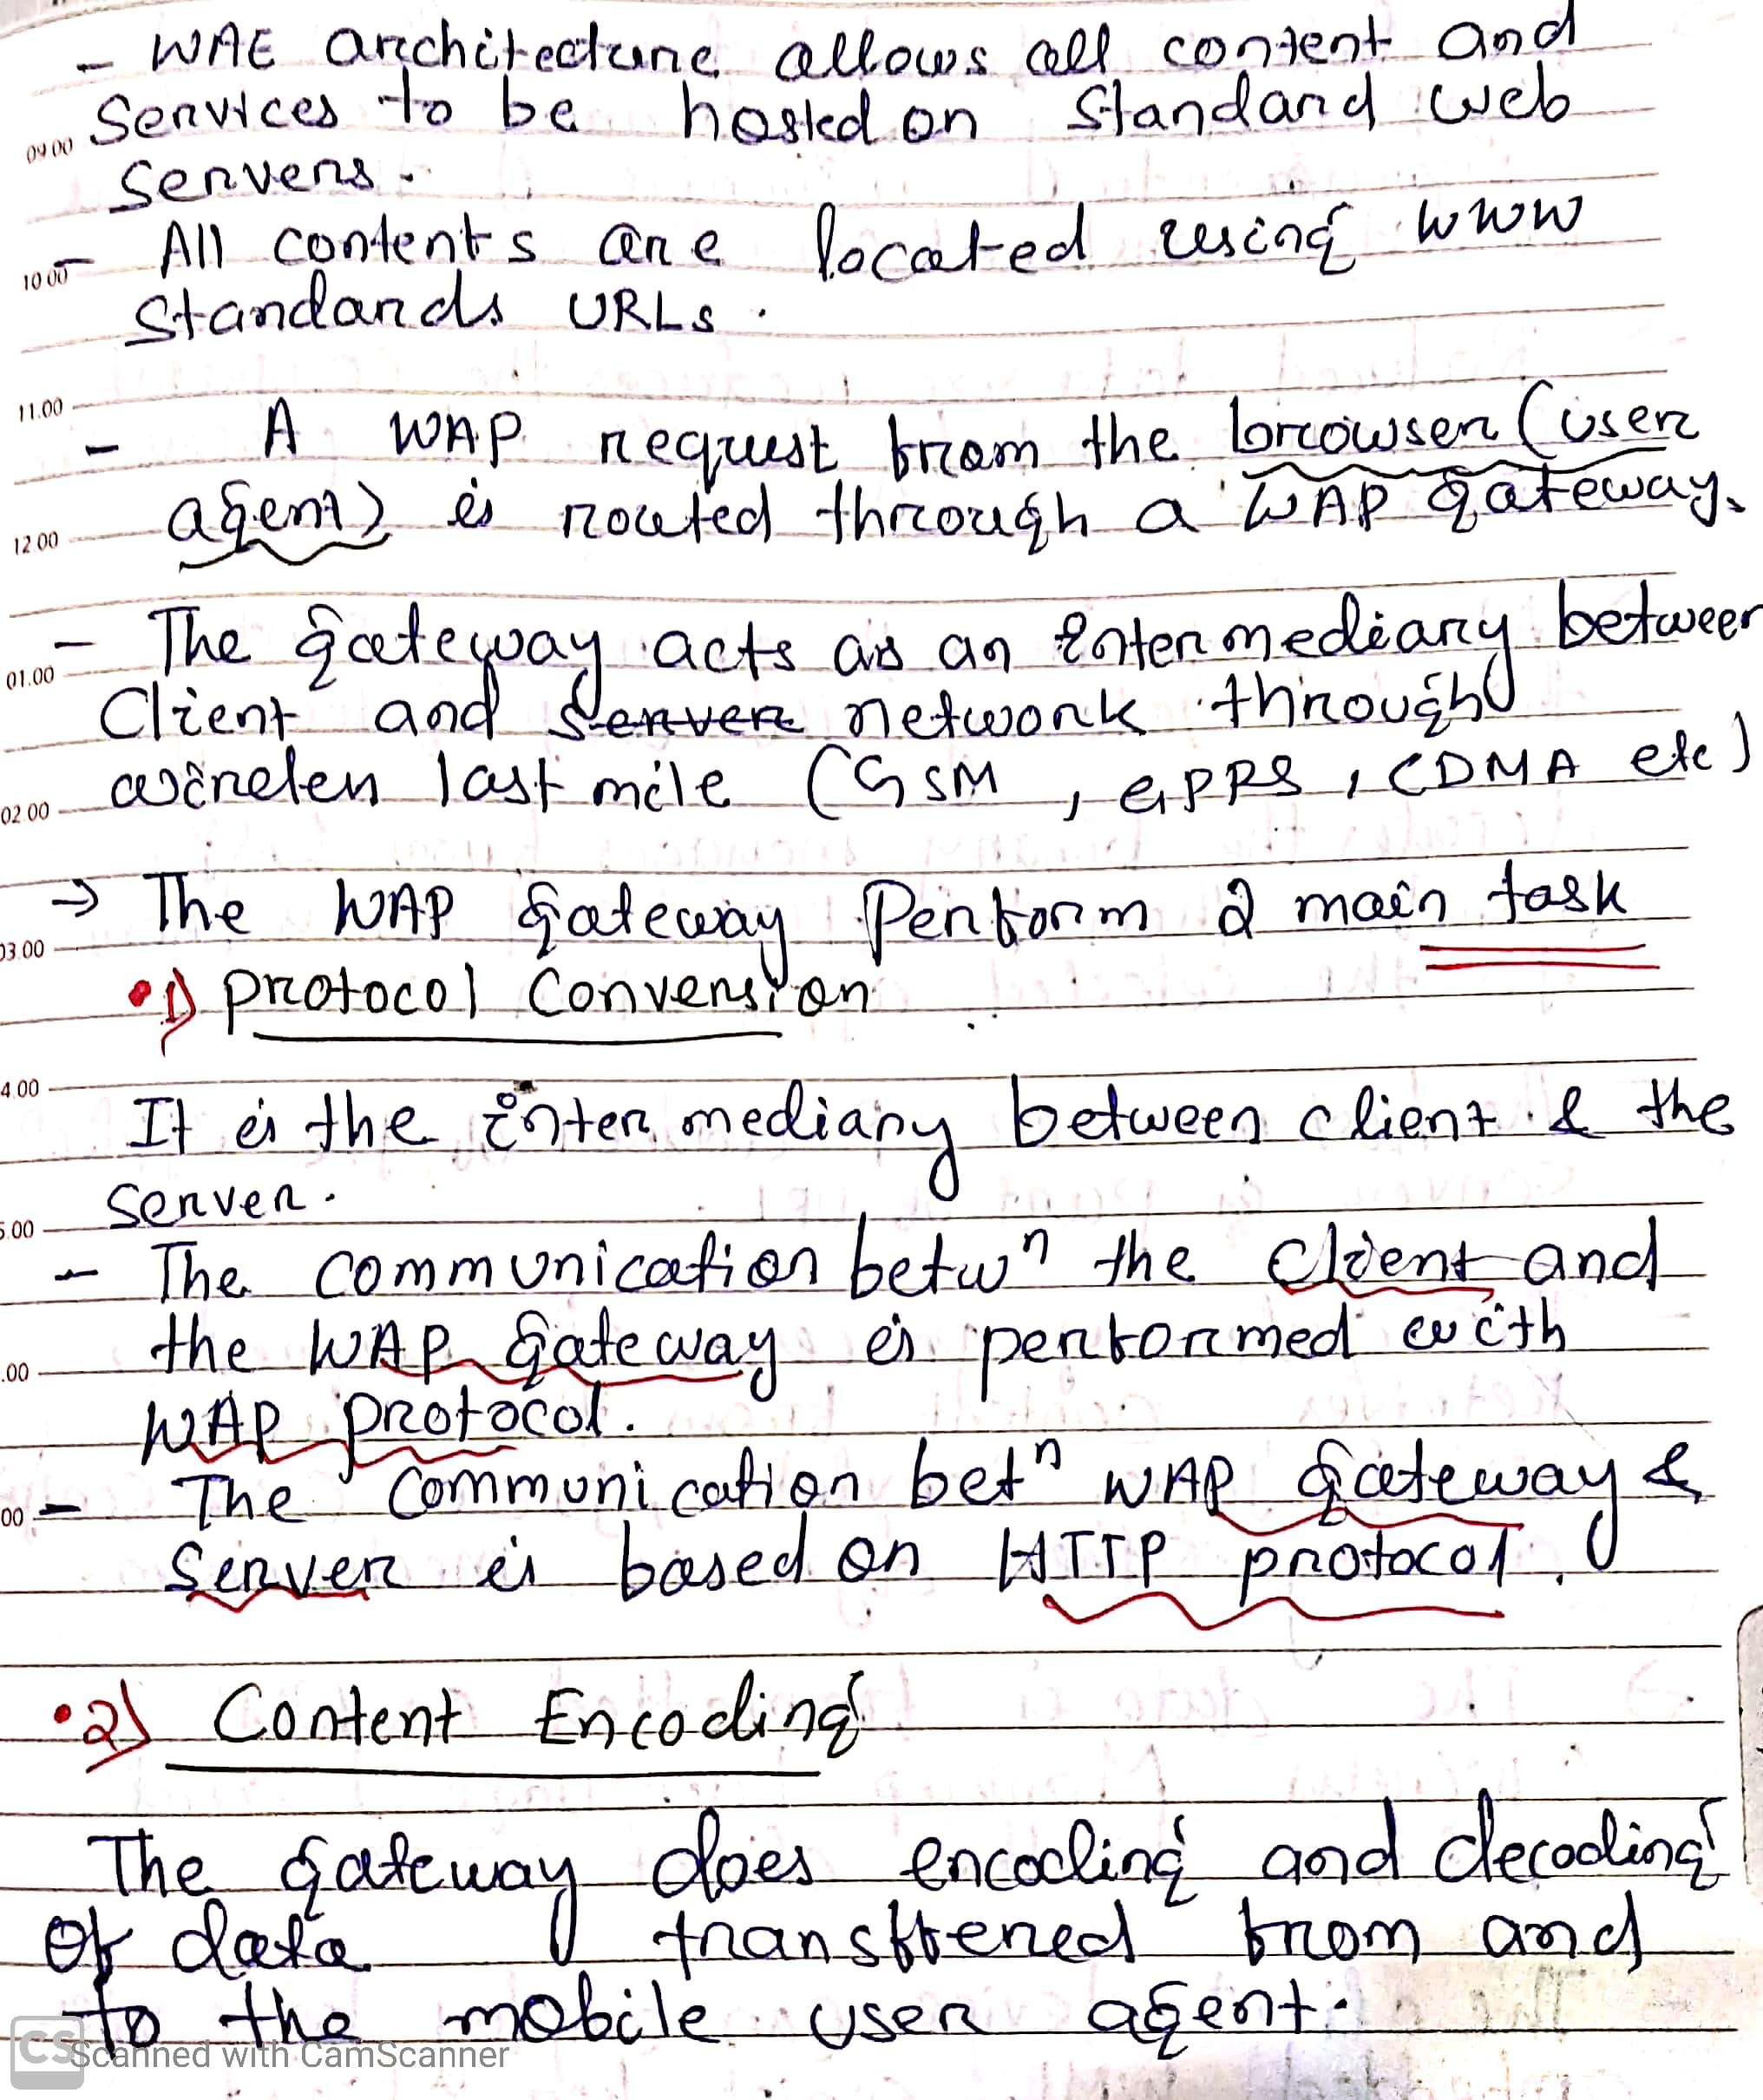 - WAE architecture allows all content and
Services to be hosted on Standard web
09 00
Servers.
- All contents are located using www
10 00
Standards URLs.
11.00
- A WAP request from the browser (user
agent) is routed through a WAP gateway.
12 00
- The gateway acts as an intermediary between
01.00
Client and server network through
wireless last mile (GSM, GPRS, CDMA etc)
02 00
→ The WAP gateway Perform 2 main task
03 00
• 1) protocol Conversion
4 00
It is the intermediary between client & the
Server.
5 00
- The communication betwn the Client and
the WAP gateway is performed with
.00
WAP protocol.
- The communication betn WAP gateway &
00
Server is based on HTTP protocol.
• 2) Content Encoding
The gateway does encoding and decoding
Of data transffered from and
to the mobile user agent.
CS Scanned with CamScanner